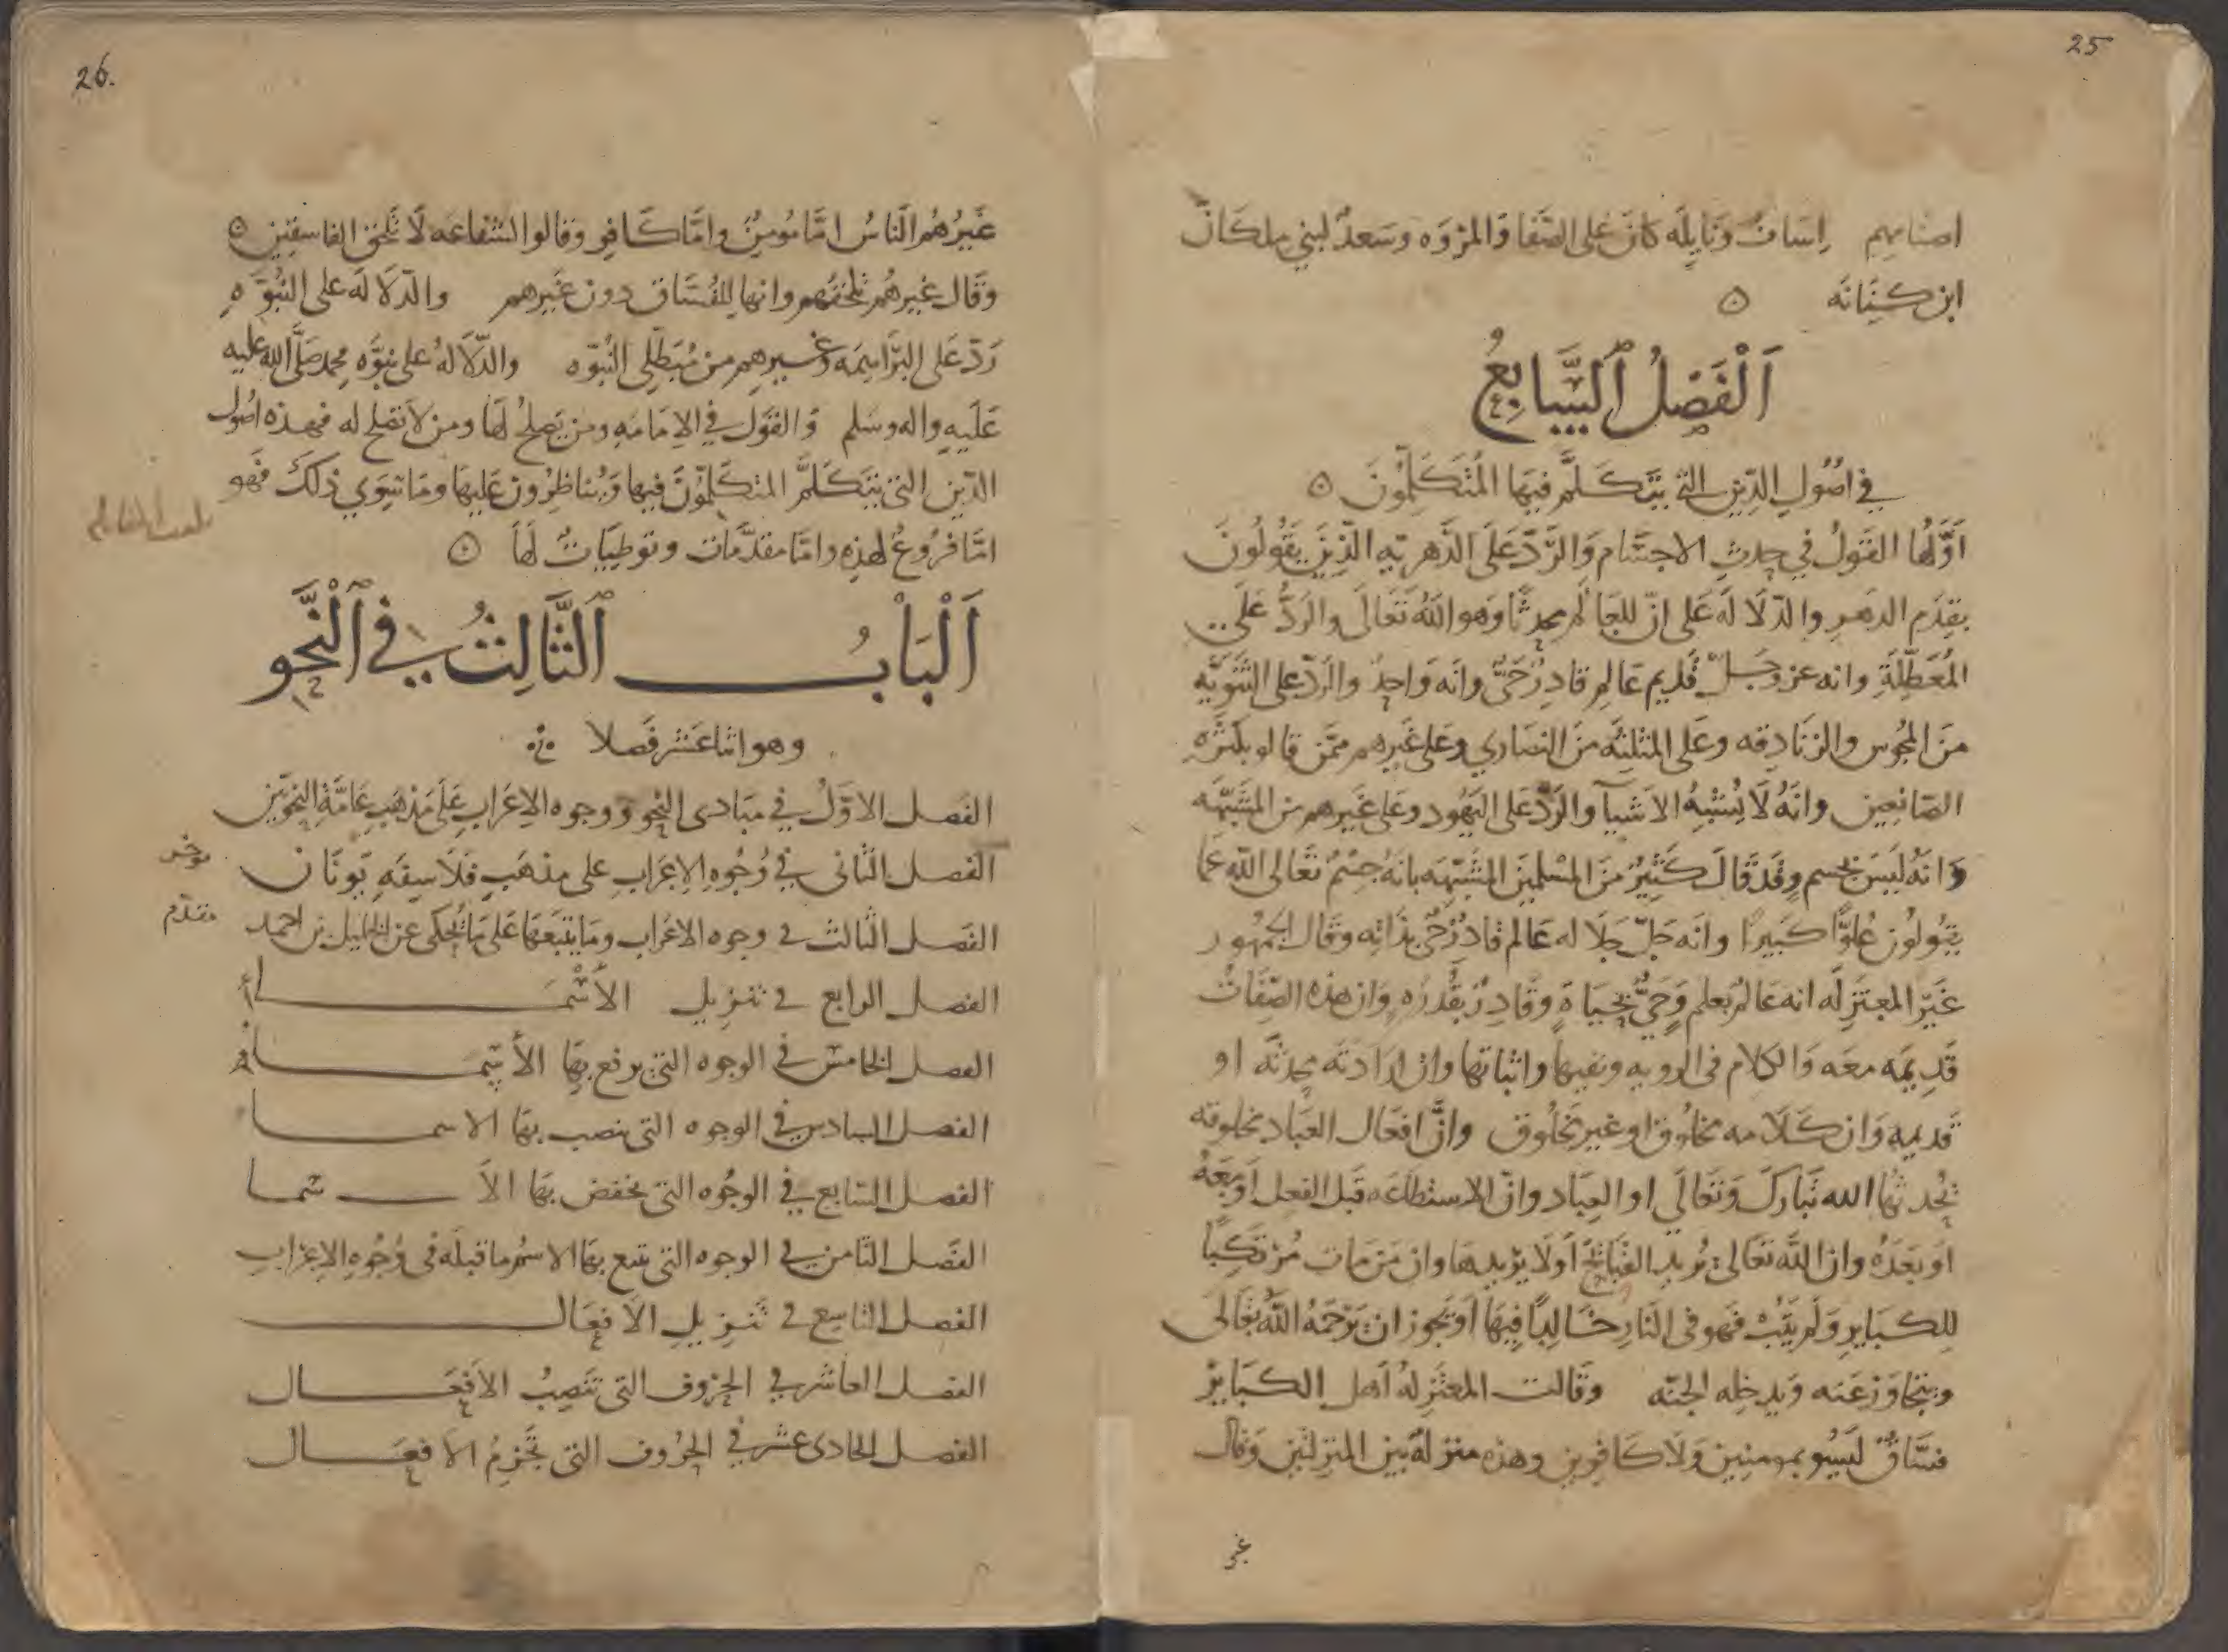 25
اصنامهم اساف ونايله كانا على الصفا والمروه وسعد لبني ملكان
ابن كنانه
اَلْفَصْلُ السَّابِعُ
في اصُولِ الدِّين التي يتكلَّم فيهَا المُتَكَلِّمُونَ
اوَّلُها القَولُ في حدثِ الاجسام وَالرَّدّ عَلَى الدَّهريّه الَّذِينَ يقُولُونَ
بقِدَم الدهر والدّلالَه عَلى انّ للعَالم محدثًا وَهو اللّهُ تَعَالَى والرَدُّ عَلَى
المُعَطِّلَةِ وانه عز وجَلّ قَديم عَالم قادِرٌ حَيٌّ وانَه وَاحِدٌ والرَدّ على الثَنَويَّه
منَ المجُوس والزنَادِقه وعَلى المثلثَه منَ النصَاري وعَلى غَيرهم ممَّن قالو بكَثرَه
الصّانِعين وانَهُ لَا يُشْبِهُ الاشيَآ والرَدّ على اليَهُود وعَلى غَيرهم من المشَبّهَه
وَانَهُ لَيسَ بجسم وقَد قَالَ كَثِيْرٌ منَ المسْلمِينَ المشَبّهَه بانَهُ جِسْمٌ تَعَالى اللّه عَما
يقُولُون عُلوًّا كبيرًا وانَه جَلّ جَلَاله عَالم قادِرٌ حَيٌّ بذَاتِه وقَال الجمهُور
غَيرَ المعتَزِلَه انه عَالم بعلم وَحَيٌّ بحَيَاةٍ وقَادِرٌ بقُدرَه وان هذه الصِّفَات
قَدِيمَه معَه وَالكلام فى الرويه ونفيها واثباتها وان ارَادتَه محدثَه او
قديمه وَان كَلَامه مخلُوق او غير مَخلُوق وانَّ افعَال العبَاد مخلوقه
يُحدثُهَا الله تبَارك وَتَعَالَى او العبَاد وانّ الاستطاعَه قبل الفعل اَو مَعَهُ
اَو بعدَهُ وان اللّه تعَالى يُريد القبَائحَ اَو لَا يُريدها وان مَن مَات مُرْتَكِبًا
لِلكبَايرِ وَلَم يتُبْ فهَو فى النَارِ خَالِدًا فِيهَا اَو يَجُوز ان يَرحَمَهُ اللّهُ تعَالَى
ويتجاوَز عَنه وَيدخِله الجنّه وقَالت المعتَزِلهُ اهل الكبَايرْ
فسّاقٌ ليسُو بمومنِين وَلَا كَافِرين وهذه منزلَهٌ بَين المنزلتَين وَقال
غير
26.
غَيرُهُم النَاسُ امّا مُومِنٌ وامَّا كَافِر وقالو الشفاعَه لَا تَلحق الفاسقِين
وقَال غيرهُم تلحقهُم وانها للفُسَّاق دون غَيرهم والدّلَالَه على النُبُوَّه
رَدّ عَلى البرَاهِمَه وغَيرهِم من مُبْطِلى النُبوّه والدّلَالهُ على نبُوَّه محمد صَلَّى الله عليه
عَلَيهِ واله وسَلم وَالقَول في الامَامَهِ ومن يَصلحُ لهَا ومن لَا تصلح له فهذه اصُول
الدّين التى يتكَلَّم المتكَلّمُونَ فيها وَيُناظِرُون عَليها ومَا سِوَي ذلكَ فهَو
امَّا فرُوعٌ لهَذِه وامّا مقدَّمات وتوطيَاتٌ لهَا
اَلْبَابُ الثَّالِثُ فِى النَّحو
وهو اثنا عَشر فَصلا
الفَصل الاوّلُ في مبَادى النحو ووجوه الاِعَراب عَلَى مَذهَب عَامَّة النحويّين
الفصل الثانى في وُجُوه الاِعرَاب على مذهَب فَلَاسِفَهِ يَونَان
موخر
الفَصل الثالث في وجوه الاعَراب ومَا يتبعُهَا عَلى مَا يُحكَى عن الخليل بن احمد
مقدّم
الفصل الرابع في تنزيل الأسْمَاء
الفصل الخامسُ في الوجوه التى يرفع بهَا الأسمَاء
الفصل السادس في الوجوه التى ينصب بهَا الاسما
الفصل السَابع في الوجُوه التى يخفض بهَا الاَسما
الفَصل الثامن في الوجوه التى يتبع بهَا الاسمُ ما قبلَه في وُجُوهِ الاِعرَابِ
الفصل التاسع في تَنزيلِ الاَفعَال
الفصل العاشر في الحروف التى تنصِبُ الاَفعَال
الفصل الحادى عشر في الحرُوف التى تَجزِمُ الافعَال